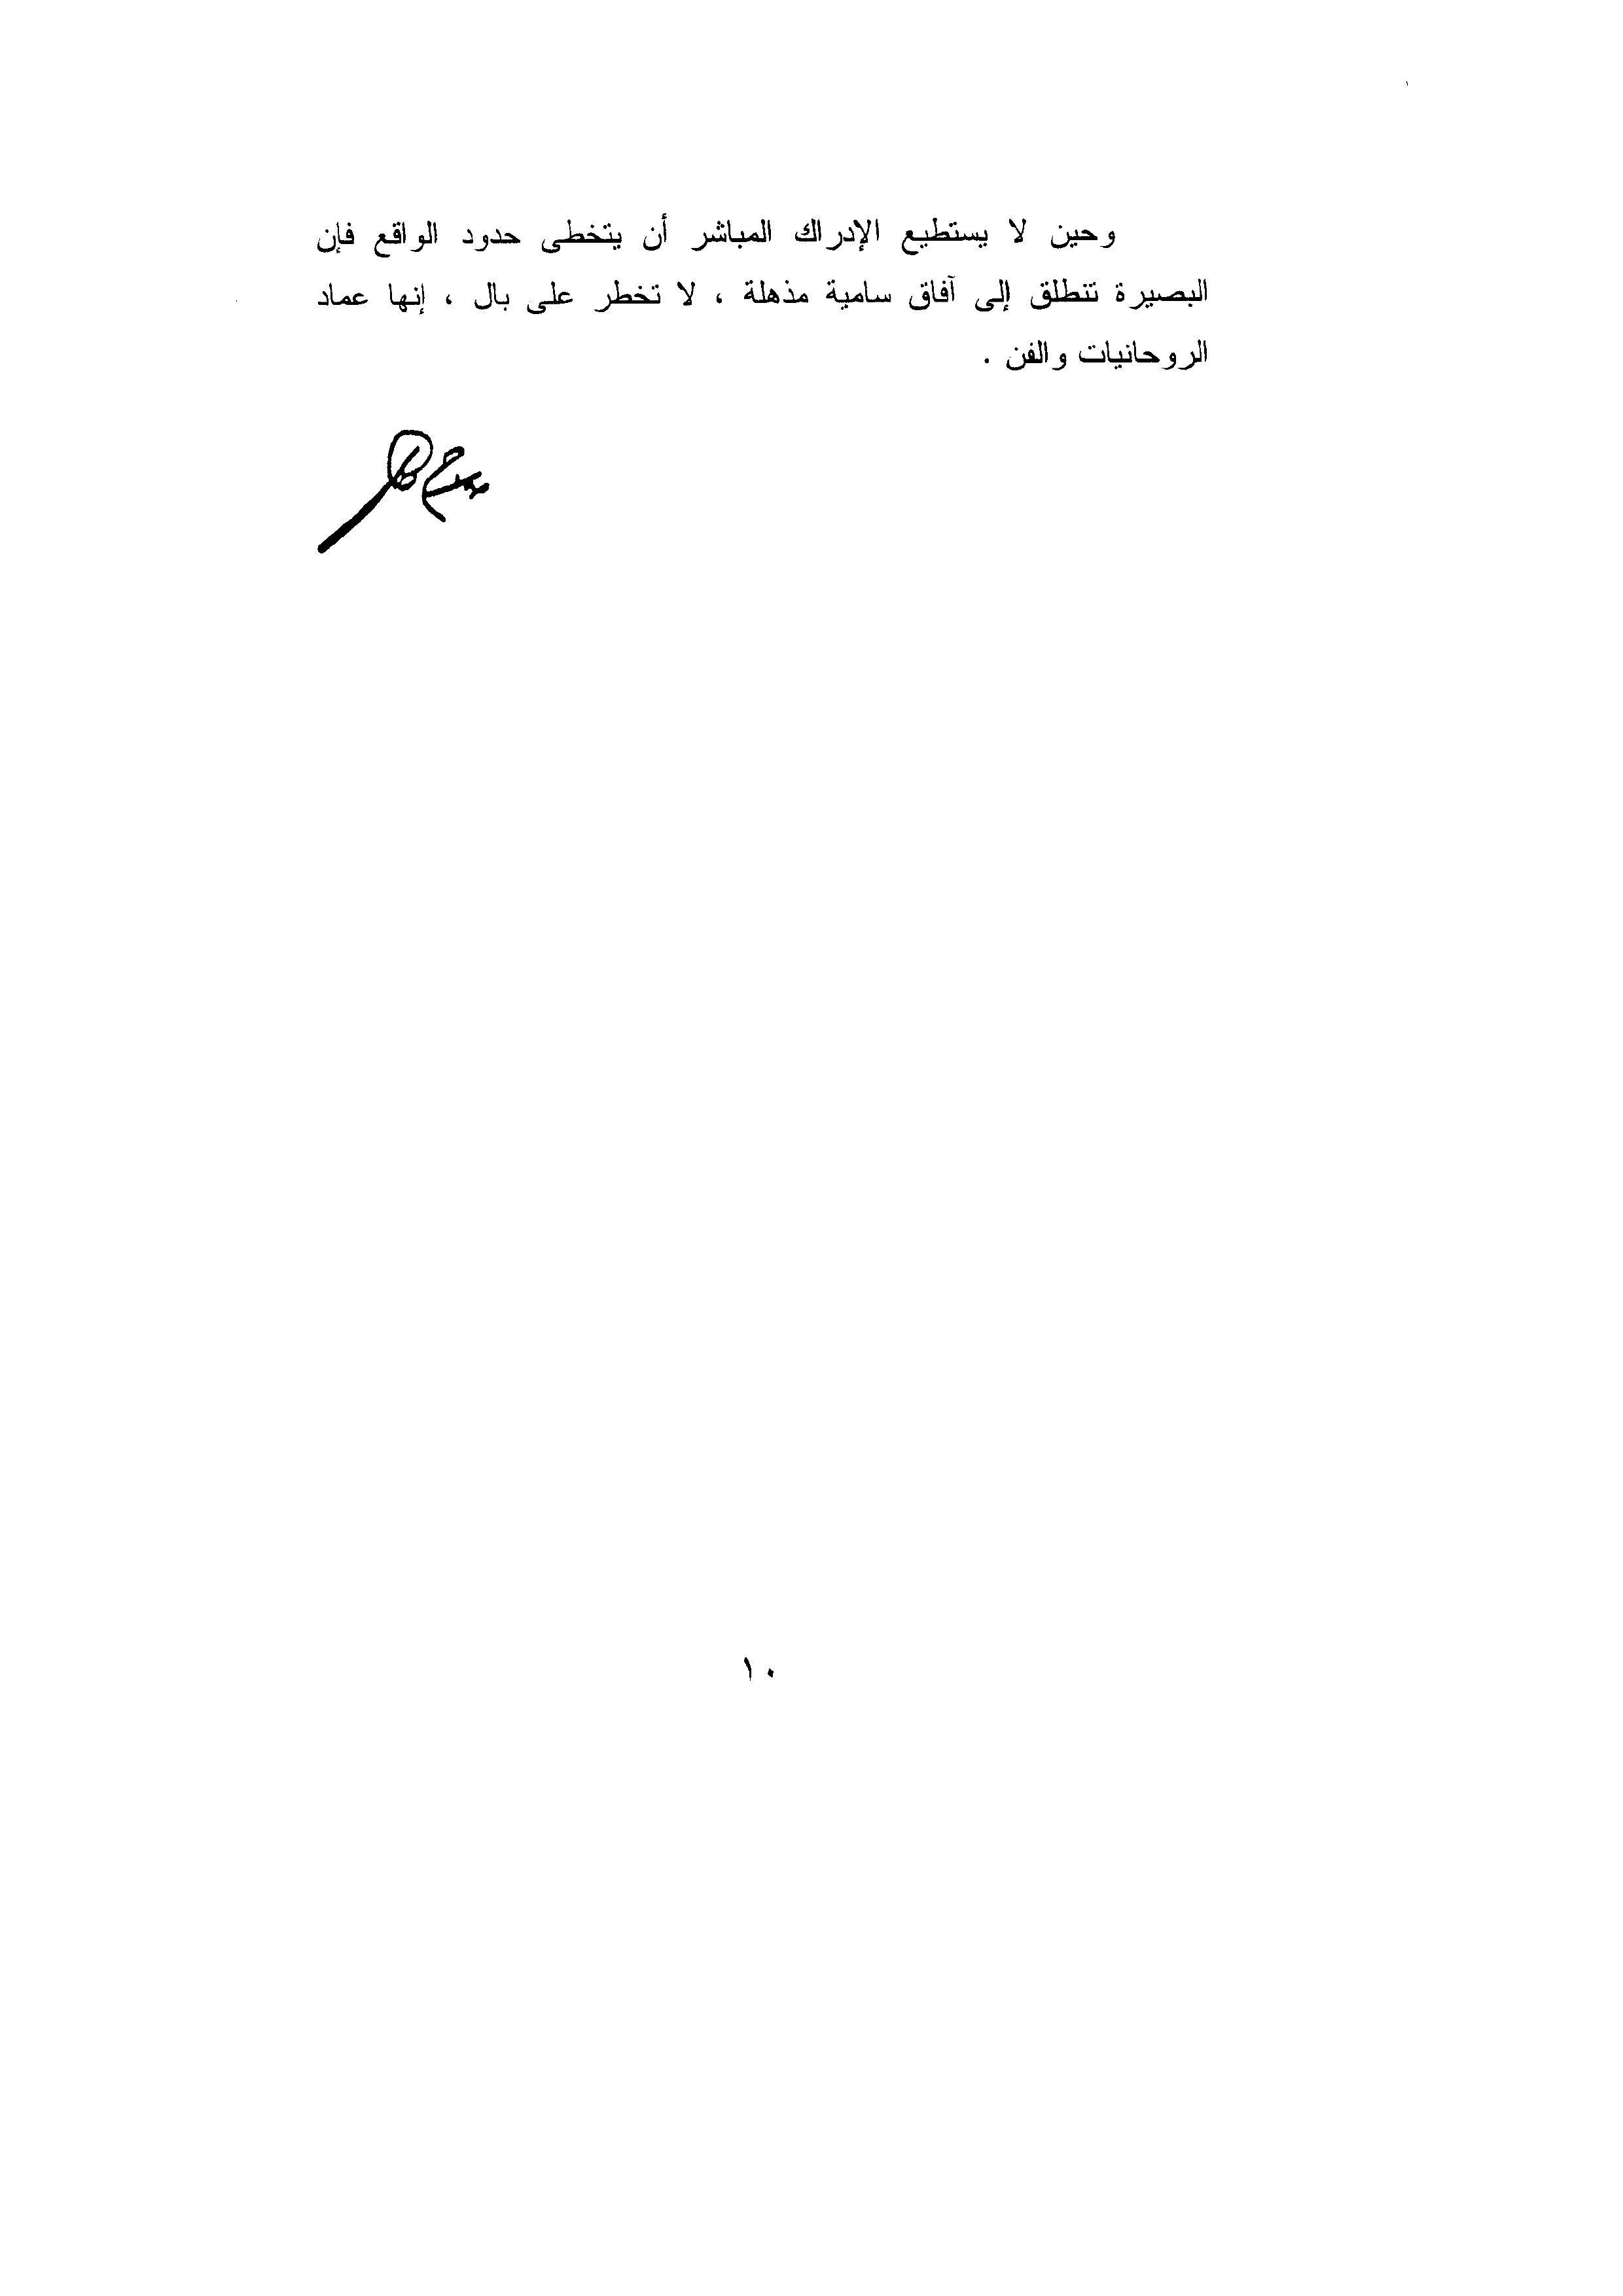 وحين لا يستطيع الإدراك المباشر أن يتخطى حدود الواقع فإن
البصيرة تنطلق إلى آفاق سامية مذهلة ، لا تخطر على بال ، إنها عماد
الروحانيات والفن .
١٠